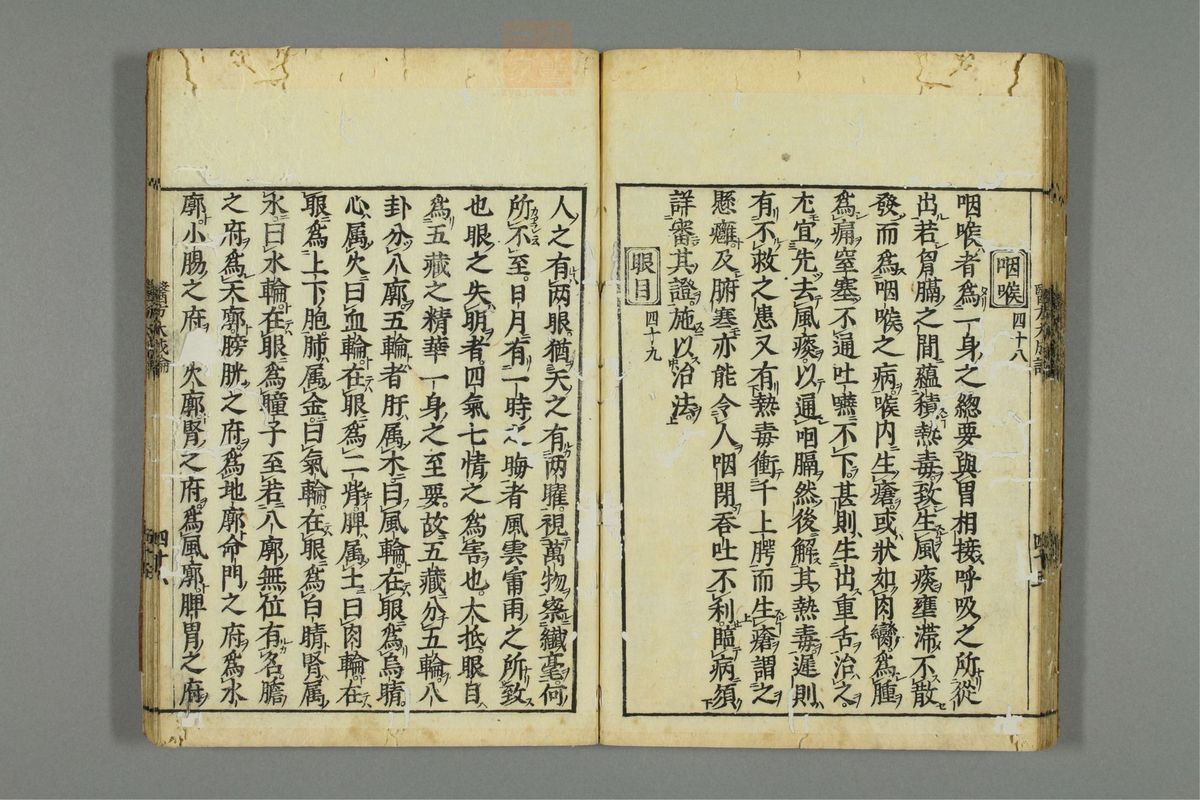 咽喉 四十八
咽喉者爲一身之總要與胃相接呼吸之所從
出若胃膈之間蘊積熱毒致生風痰壅滯不散
發而爲咽喉之病喉内生瘡或狀如肉臠爲腫
爲痛窒塞不通吐嚥不下甚則生出重舌治之
尤宜先去風痰以通咽膈然後解其熱毒遲則
有不救之患又有熱毒衝于上腭而生瘡謂之
懸癰及腑寒亦能令人咽閉吞吐不利臨病須
詳審其證施以治法
眼目 四十九
人之有两眼猶天之有两曜視萬物察纖毫何
所不至日月有一時之晦者風雲雷雨之所致
也眼之失明者四氣七情之爲害也大抵眼目
爲五藏之精華一身之至要故五藏分五輪八
卦分八廓五輪者肝属木曰風輪在眼爲烏睛
心属火曰血輪在眼爲二眥脾属土曰肉輪在
眼爲上下胞肺属金曰氣輪在眼爲白睛腎属
水曰水輪在眼爲瞳子至若八廓無位有名膽
之府爲天廓膀胱之府爲地廓命門之府爲水
廓小腸之府 火廓腎之府爲風廓脾胃之府